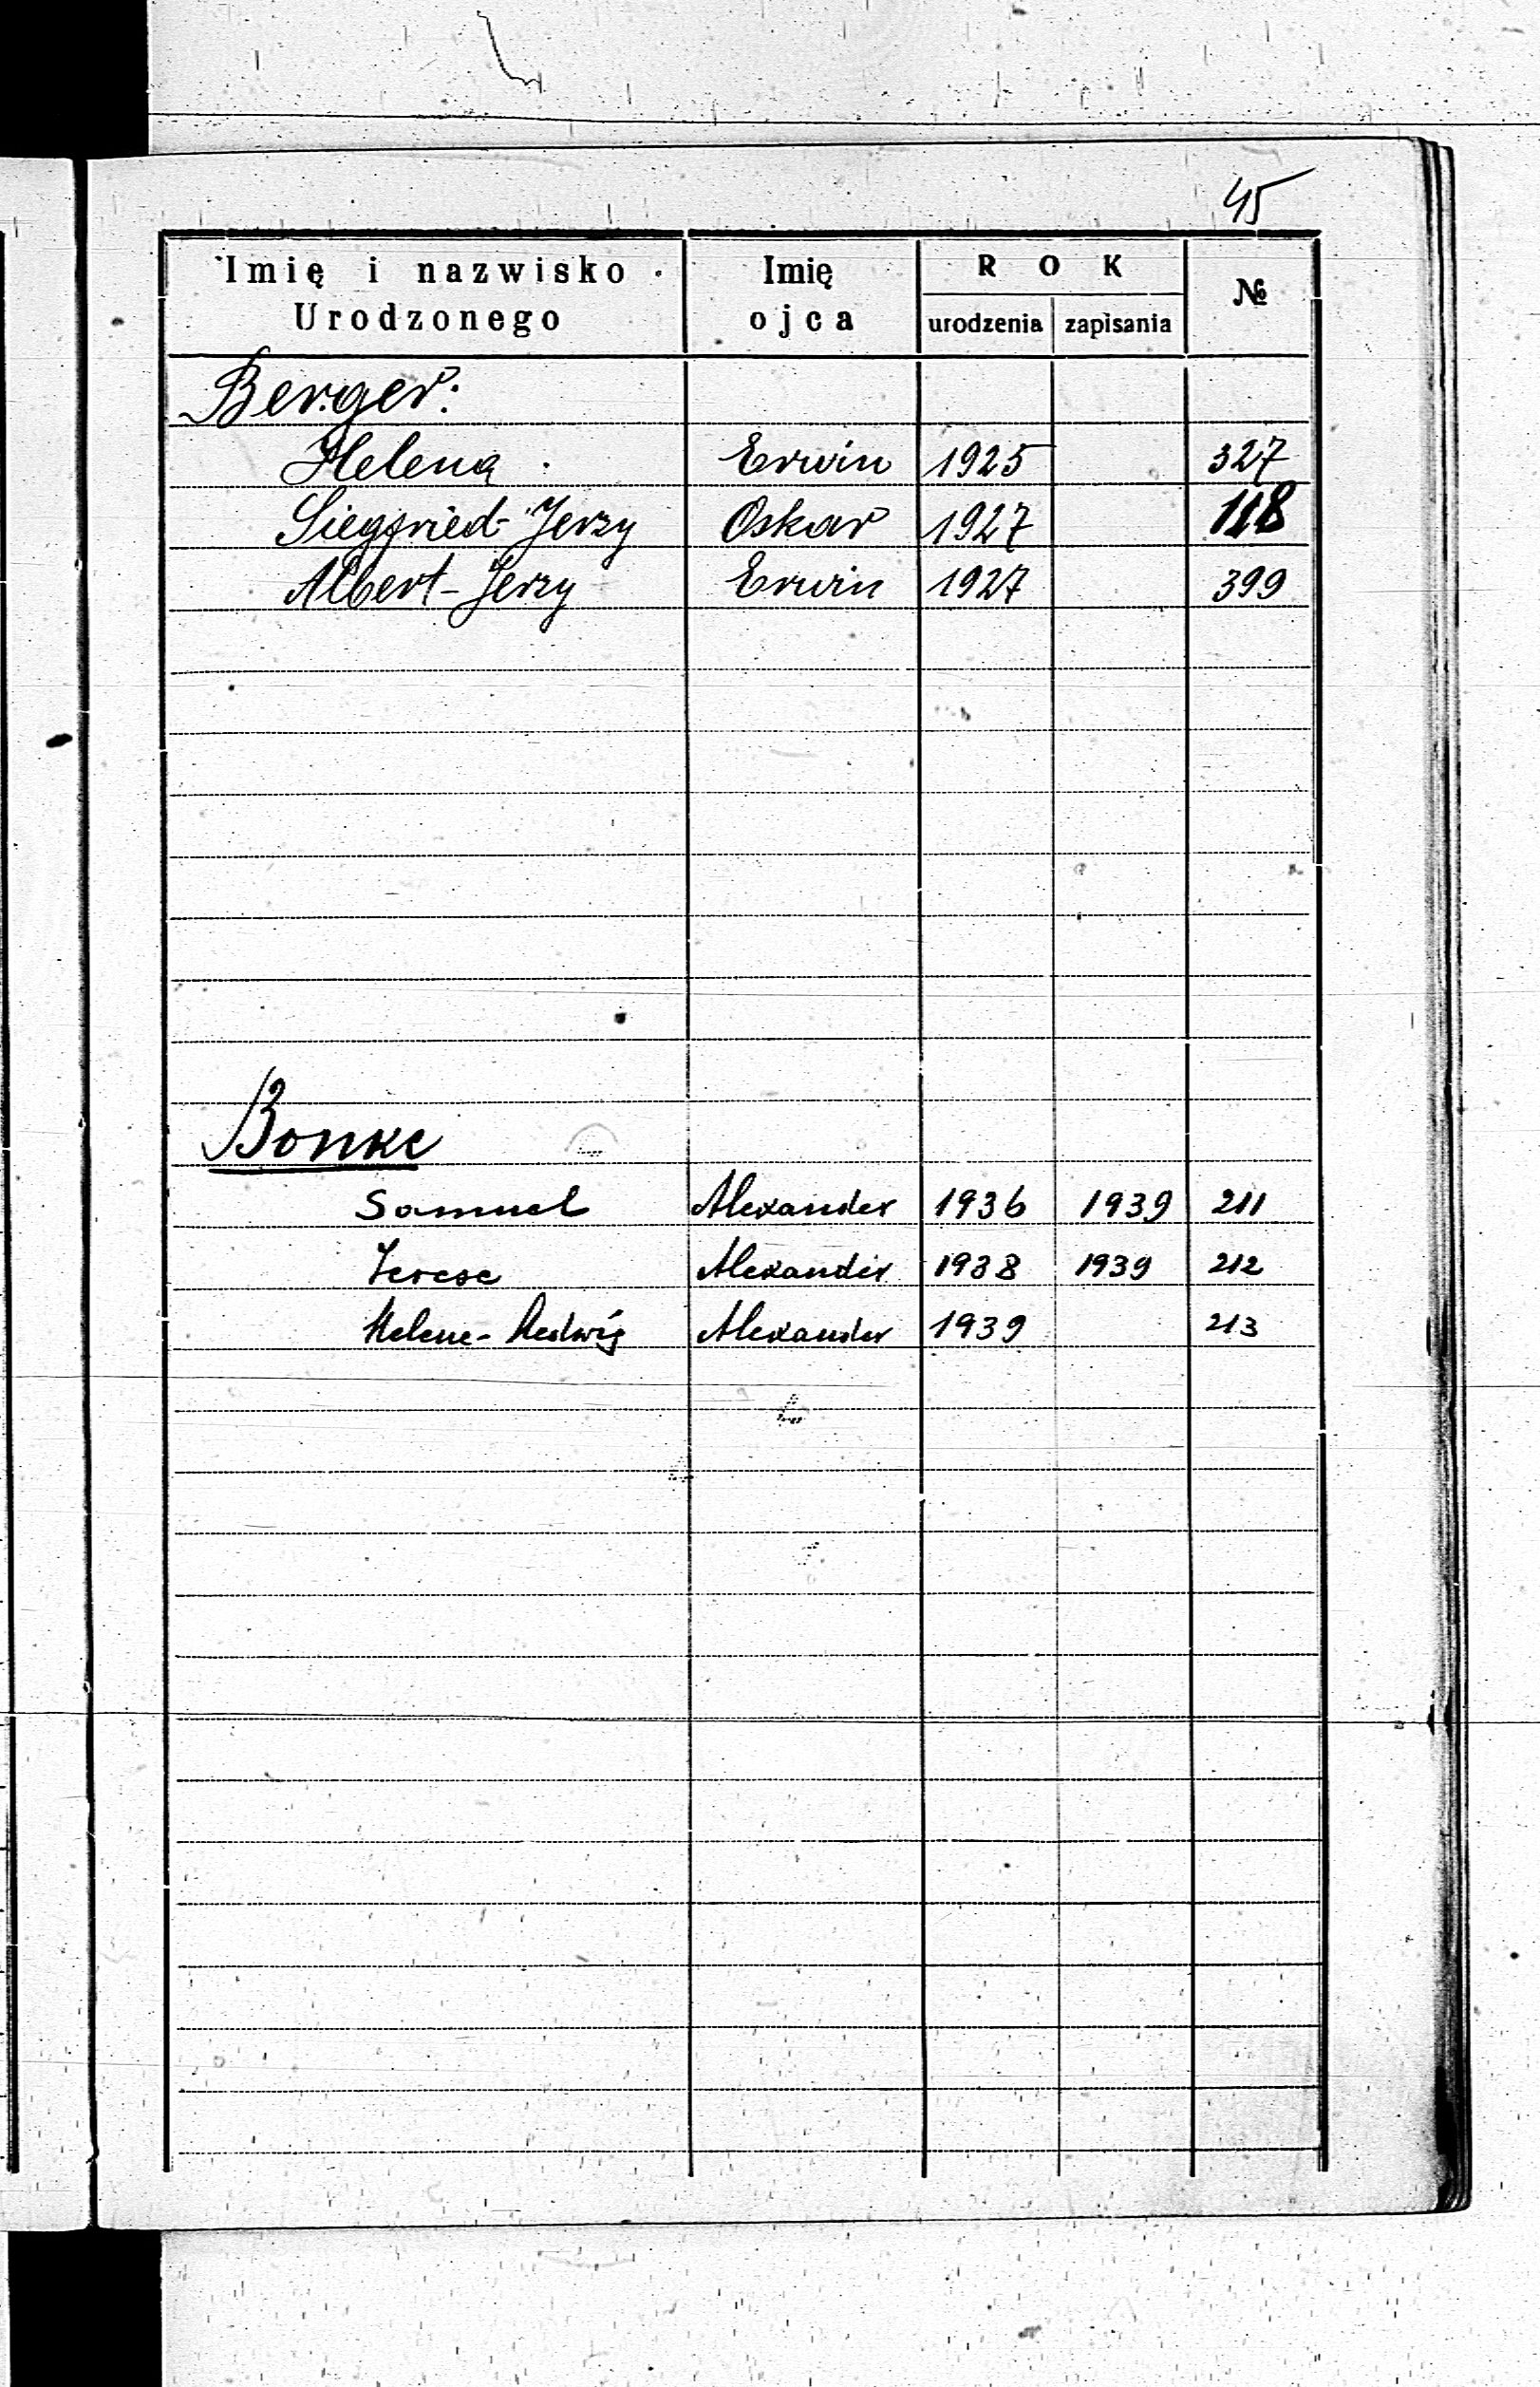 45
Imię i nazwisko Urodzonego Imię ojca ROK urodzenia zapisania №
Berger:
Helena Erwin 1925 327
Siegfried-Jerzy Oskar 1927 118
Albert-Jerzy Erwin 1927 399
Bonke
Samuel Alexander 1936 1939 211
Terese Alexander 1938 1939 212
Helene-Hedwig Alexander 1939 213